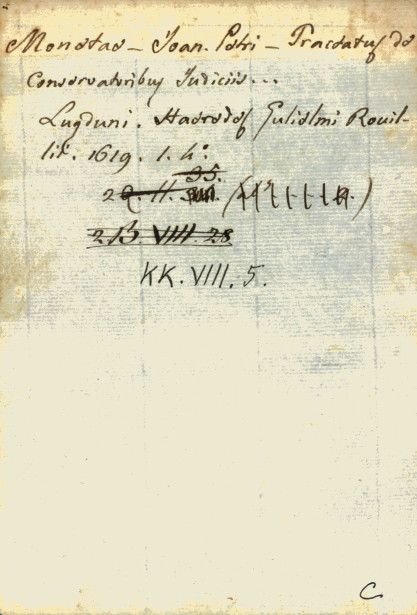 Monetae - Joan. Petri - Tractatus de
Conservatoribus Judiciis...
Lugduni. Haeredes Gulielmi Rouil-
lii. 1619. 1. 4°.
35.
2 Q. II.
2 B. VIII. 28
KK. VIII. 5.
C